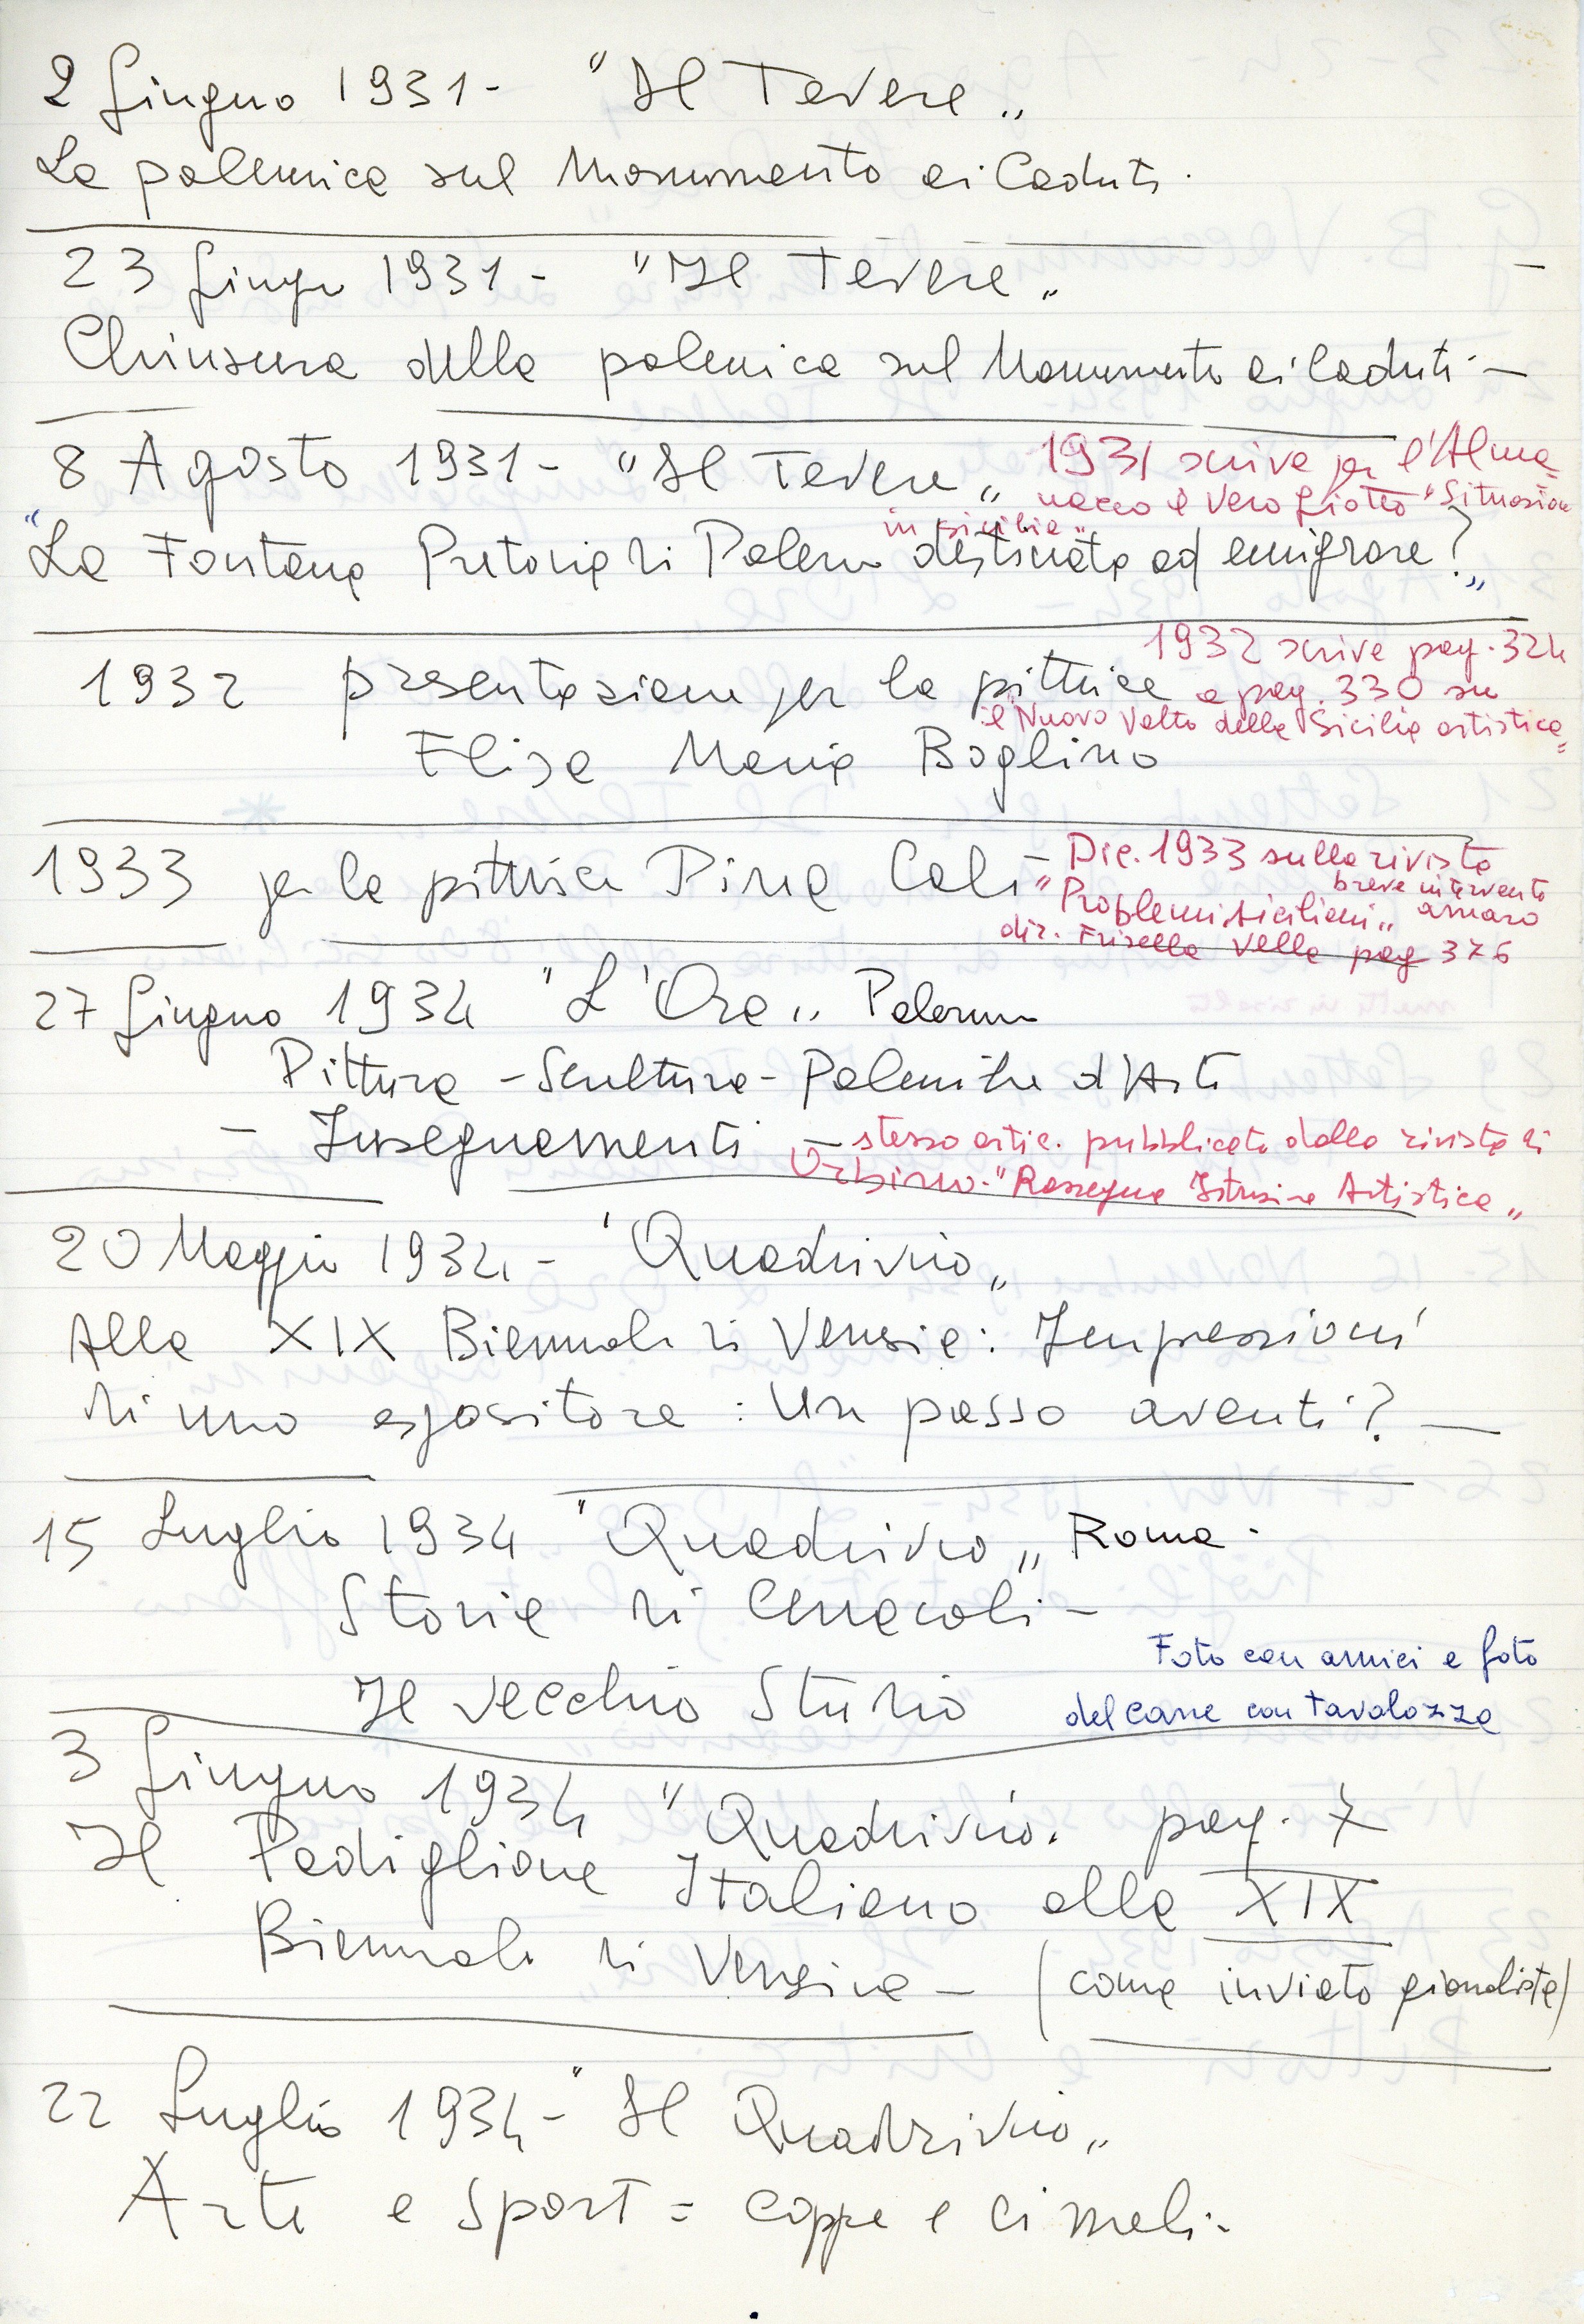 2 Giugno 1931 - "Il Tevere"
La polemica sul Monumento ai Caduti.
23 Giugno 1931 - "Il Tevere" -
Chiusura della polemica sul Monumento ai Caduti -
8 Agosto 1931 - "Il Tevere"
1931 scrive per l'Alma=
nacco e Vero Giotto "Situazione
in Sicilia"
"La Fontana Pretoria di Palermo destinata ad emigrare?"
1932 presentazione per la pittrice
Elisa Maria Boglino
1932 scrive pag. 324
e pag. 330 su
"il Nuovo Volto della Sicilia artistica"
1933 per la pittrice Pina Calì -
Dic. 1933 sulla rivista
"Problemi siciliani" breve intervento amaro
dir. Frisella Vella pag 376
27 Giugno 1934 "L'Ora" Palermo
Pittura - Scultura - Polemiche d'Arte
- Insegnamenti -
stesso artic. pubblicato dalla rivista di
Urbino - "Rassegna Istruzione Artistica"
20 Maggio 1934 - "Quadrivio"
Alla XIX Biennale di Venezia: Impressioni
di uno espositore: Un passo avanti? -
15 Luglio 1934 "Quadrivio" Roma.
Storie di Cenacoli -
Il vecchio Studio
Foto con amici e foto
del cane con tavolozza
3 Giugno 1934 "Quadrivio. pag. 7
Il Padiglione Italiano alla XIX
Biennale di Venezia - (come inviato giornalista)
22 Luglio 1934 - "Il Quadrivio"
Arte e Sport = coppe e cimeli -